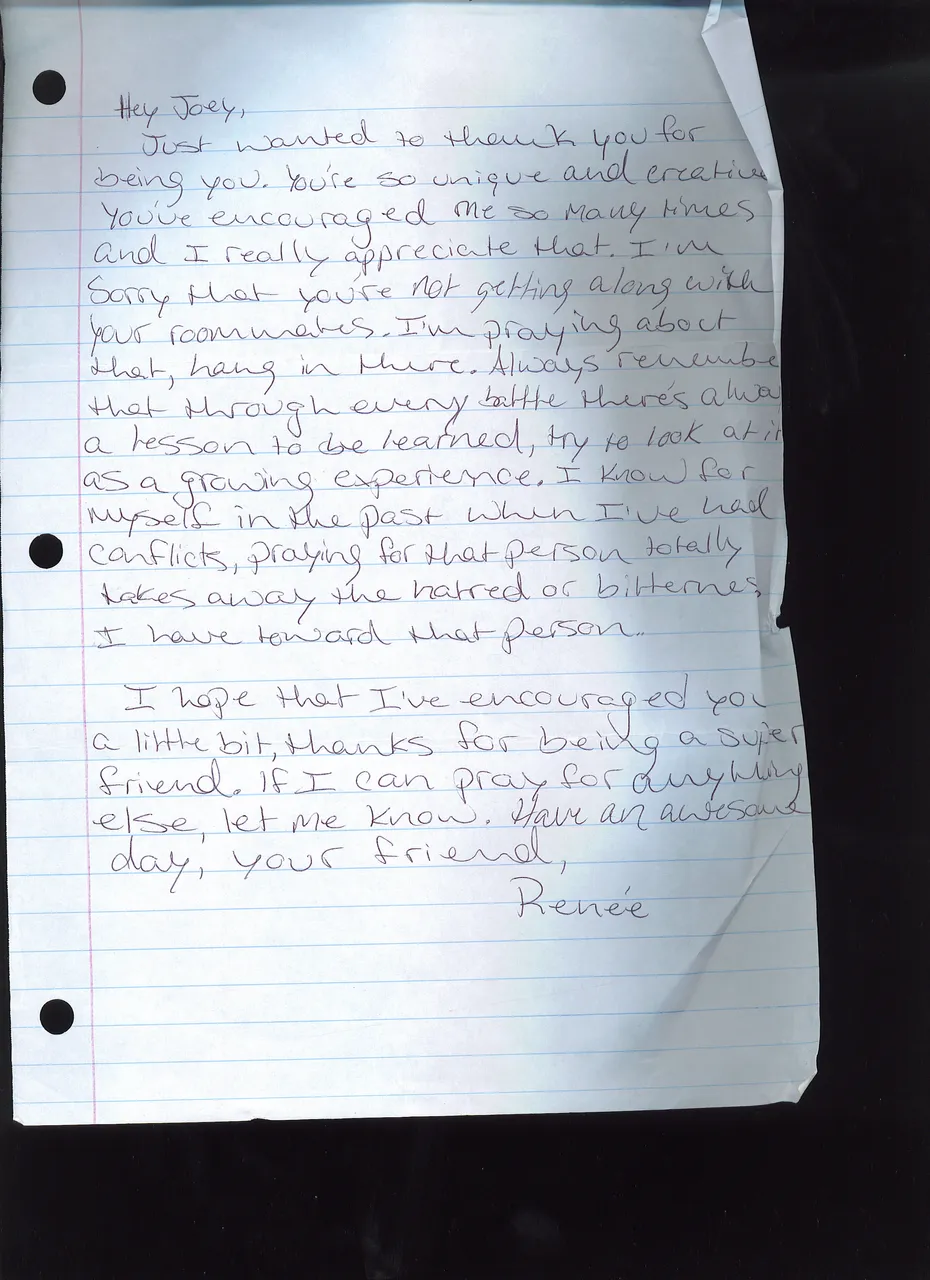 Hey Joey,
Just wanted to thank you for
being you. You're so unique and creative
You've encouraged me so many times
and I really appreciate that. I'm
Sorry that you're not getting along with
your roommates. I'm praying about
that, hang in there. Always remembe
that through every battle there's alwa
a lesson to be learned, try to look at it
as a growing experience. I know for
myself in the past when I've had
conflicts, praying for that person totally
takes away the hatred or bitternes
I have toward that person.
I hope that I've encouraged you
a little bit, thanks for being a super
friend. If I can pray for anything
else, let me know. Have an awesome
day, your friend,
Renée